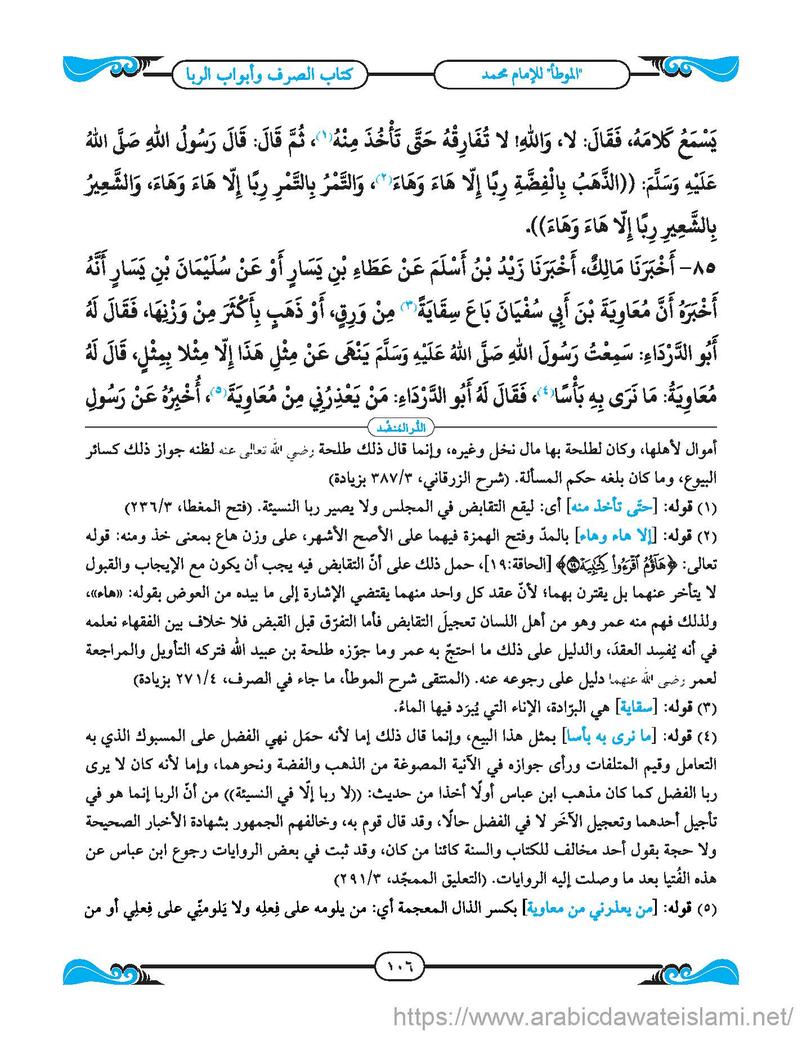 "الموطأ" للإمام محمد
كتاب الصرف وأبواب الربا
يَسْمَعُ كَلَامَهُ، فَقَالَ: لا، وَاللهِ! لا تُفَارِقْهُ حَتَّى تَأْخُذَ مِنْهُ(١)، ثُمَّ قَالَ: قَالَ رَسُولُ اللهِ صَلَّى اللهُ
عَلَيْهِ وَسَلَّمَ: ((الذَّهَبُ بِالْفِضَّةِ رِبًا إِلّا هَاءَ وَهَاءَ(٢)، وَالتَّمْرُ بِالتَّمْرِ رِبًا إِلّا هَاءَ وَهَاءَ، وَالشَّعِيرُ
بِالشَّعِيرِ رِبًا إِلّا هَاءَ وَهَاءَ)).
٨٥- أَخْبَرَنَا مَالِكٌ، أَخْبَرَنَا زَيْدُ بْنُ أَسْلَمَ عَنْ عَطَاءِ بْنِ يَسَارٍ أَوْ عَنْ سُلَيْمَانَ بْنِ يَسَارٍ أَنَّهُ
أَخْبَرَهُ أَنَّ مُعَاوِيَةَ بْنَ أَبِي سُفْيَانَ بَاعَ سِقَايَةً(٣) مِنْ وَرِقٍ، أَوْ ذَهَبٍ بِأَكْثَرَ مِنْ وَزْنِهَا، فَقَالَ لَهُ
أَبُو الدَّرْدَاءِ: سَمِعْتُ رَسُولَ اللهِ صَلَّى اللهُ عَلَيْهِ وَسَلَّمَ يَنْهَى عَنْ مِثْلِ هَذَا إِلّا مِثْلا بِمِثْلٍ، قَالَ لَهُ
مُعَاوِيَةُ: مَا نَرَى بِهِ بَأْسًا(٤)، فَقَالَ لَهُ أَبُو الدَّرْدَاءِ: مَنْ يَعْذِرُنِي مِنْ مُعَاوِيَةَ(٥)، أُخْبِرُهُ عَنْ رَسُولِ
الدر المنضد
أموال لأهلها، وكان لطلحة بها مال نخل وغيره، وإنما قال ذلك طلحة رضي الله تعالى عنه لظنه جواز ذلك كسائر
البيوع، وما كان بلغه حكم المسألة. (شرح الزرقاني، ٣٨٧/٣ بزيادة)
(١) قوله: [حتّى تأخذ منه] أى: ليقع التقابض في المجلس ولا يصير ربا النسيئة. (فتح المغطا، ٢٣٦/٣)
(٢) قوله: [إلا هاء وهاء] بالمدّ وفتح الهمزة فيهما على الأصح الأشهر، على وزن هاع بمعنى خذ ومنه: قوله
تعالى: ﴿هَآؤُمُ ٱقْرَءُوا۟ كِتَٰبِيَهْ ١٩﴾ [الحاقة:١٩]، حمل ذلك على أنّ التقابض فيه يجب أن يكون مع الإيجاب والقبول
لا يتأخر عنهما بل يقترن بهما؛ لأنّ عقد كل واحد منهما يقتضي الإشارة إلى ما بيده من العوض بقوله: «هاء»،
ولذلك فهم منه عمر وهو من أهل اللسان تعجيلَ التقابض فأما التفرّق قبل القبض فلا خلاف بين الفقهاء نعلمه
في أنه يُفسِد العقدَ، والدليل على ذلك ما احتجّ به عمر وما جوّزه طلحة بن عبيد الله فتركه التأويل والمراجعة
لعمر رضي الله عنهما دليل على رجوعه عنه. (المنتقى شرح الموطأ، ما جاء في الصرف، ٢٧١/٤ بزيادة)
(٣) قوله: [سقاية] هي البرّادة، الإناء التي يُبرَد فيها الماءُ.
(٤) قوله: [ما نرى به بأسا] بمثل هذا البيع، وإنما قال ذلك إما لأنه حمَل نهي الفضل على المسبوك الذي به
التعامل وقيم المتلفات ورأى جوازه في الآنية المصوغة من الذهب والفضة ونحوهما، وإما لأنه كان لا يرى
ربا الفضل كما كان مذهب ابن عباس أولًا أخذا من حديث: ((لا ربا إلّا في النسيئة)) من أنّ الربا إنما هو في
تأجيل أحدهما وتعجيل الآخَر لا في الفضل حالًا، وقد قال قوم به، وخالفهم الجمهور بشهادة الأخبار الصحيحة
ولا حجة بقول أحد مخالف للكتاب والسنة كائنا من كان، وقد ثبت في بعض الروايات رجوع ابن عباس عن
هذه الفُتيا بعد ما وصلت إليه الروايات. (التعليق الممجّد، ٢٩١/٣)
(٥) قوله: [من يعذرني من معاوية] بكسر الذال المعجمة أي: من يلومه على فِعلِه ولا يَلومنّي على فِعلِي أو من
١٠٦
https://www.arabicdawateislami.net/